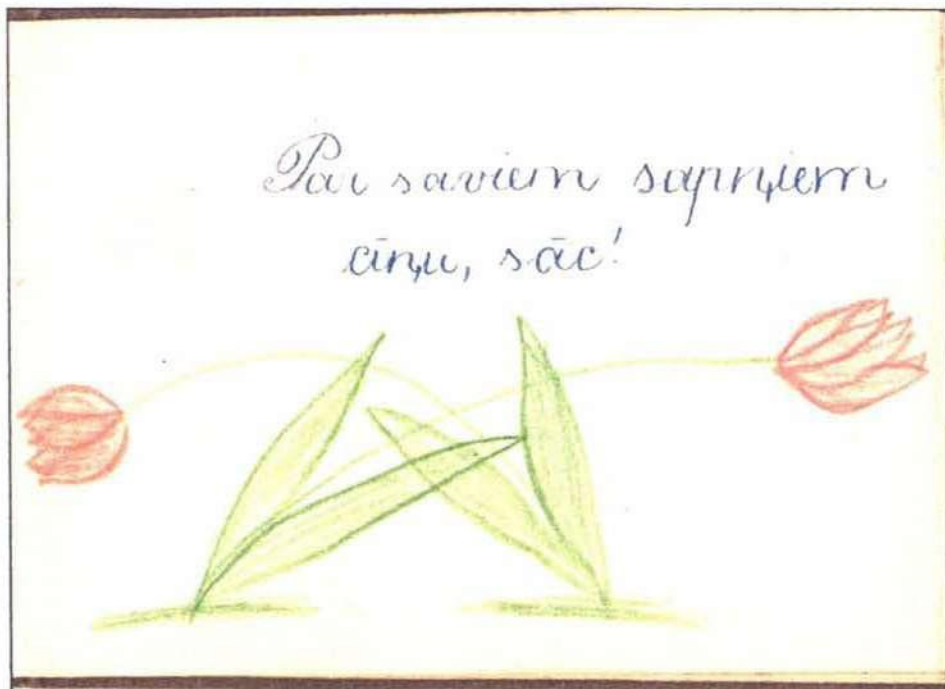 Par saviem sapņiem
cīņu, sāc!